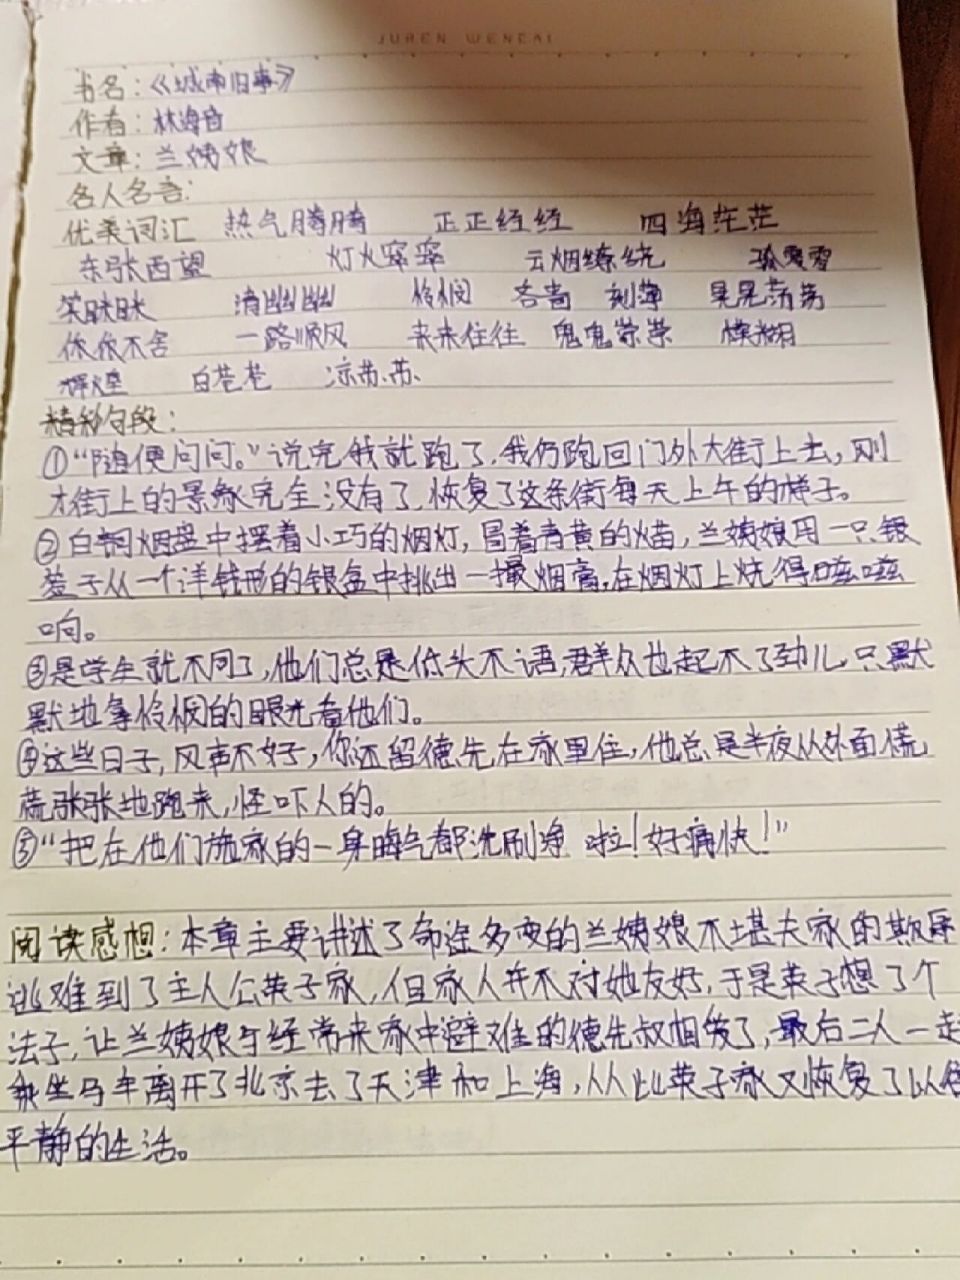 JUREN WENCAI
书名:《城南旧事》
作者:林海音
文章:兰姨娘
名人名言:
优美词汇 热气腾腾 正正经经 四海茫茫
东张西望 灯火寥寥 云烟缭绕
笑眯眯 清幽幽 怜悯 吝啬 刻薄 晃晃荡荡
依依不舍 一路顺风 来来往往 鬼鬼祟祟 模糊
辉煌 白茫茫 凉苏苏
精彩句段:
①“随便问问。”说完我就跑了,我仍跑回门外大街上去,刚
才街上的景象完全没有了,恢复了这条街每天上午的样子。
②白铜烟盘中摆着小巧的烟灯,冒着青黄的火苗,兰姨娘用一只银
签子从一个洋钱形的银盒中挑出一撮烟膏,在烟灯上烧得嗞嗞
响。
③是学生就不同了,他们总是低头不语,群众也起不了劲儿,只默
默地拿怜悯的眼光看他们。
④这些日子,风声不好,你还留德先在家里住,他总是半夜从外面慌
慌张张地跑来,怪吓人的。
⑤“把在他们施家的一身晦气都洗刷净 啦!好痛快!”
阅读感想:本章主要讲述了命途多变的兰姨娘不堪夫家的欺辱
逃难到了主人公英子家,但家人并不对她友好,于是英子想了个
法子,让兰姨娘与经常来家中避难的德先叔相爱了,最后二人一起
乘坐马车离开了北京去了天津和上海,从此英子家又恢复了以往
平静的生活。